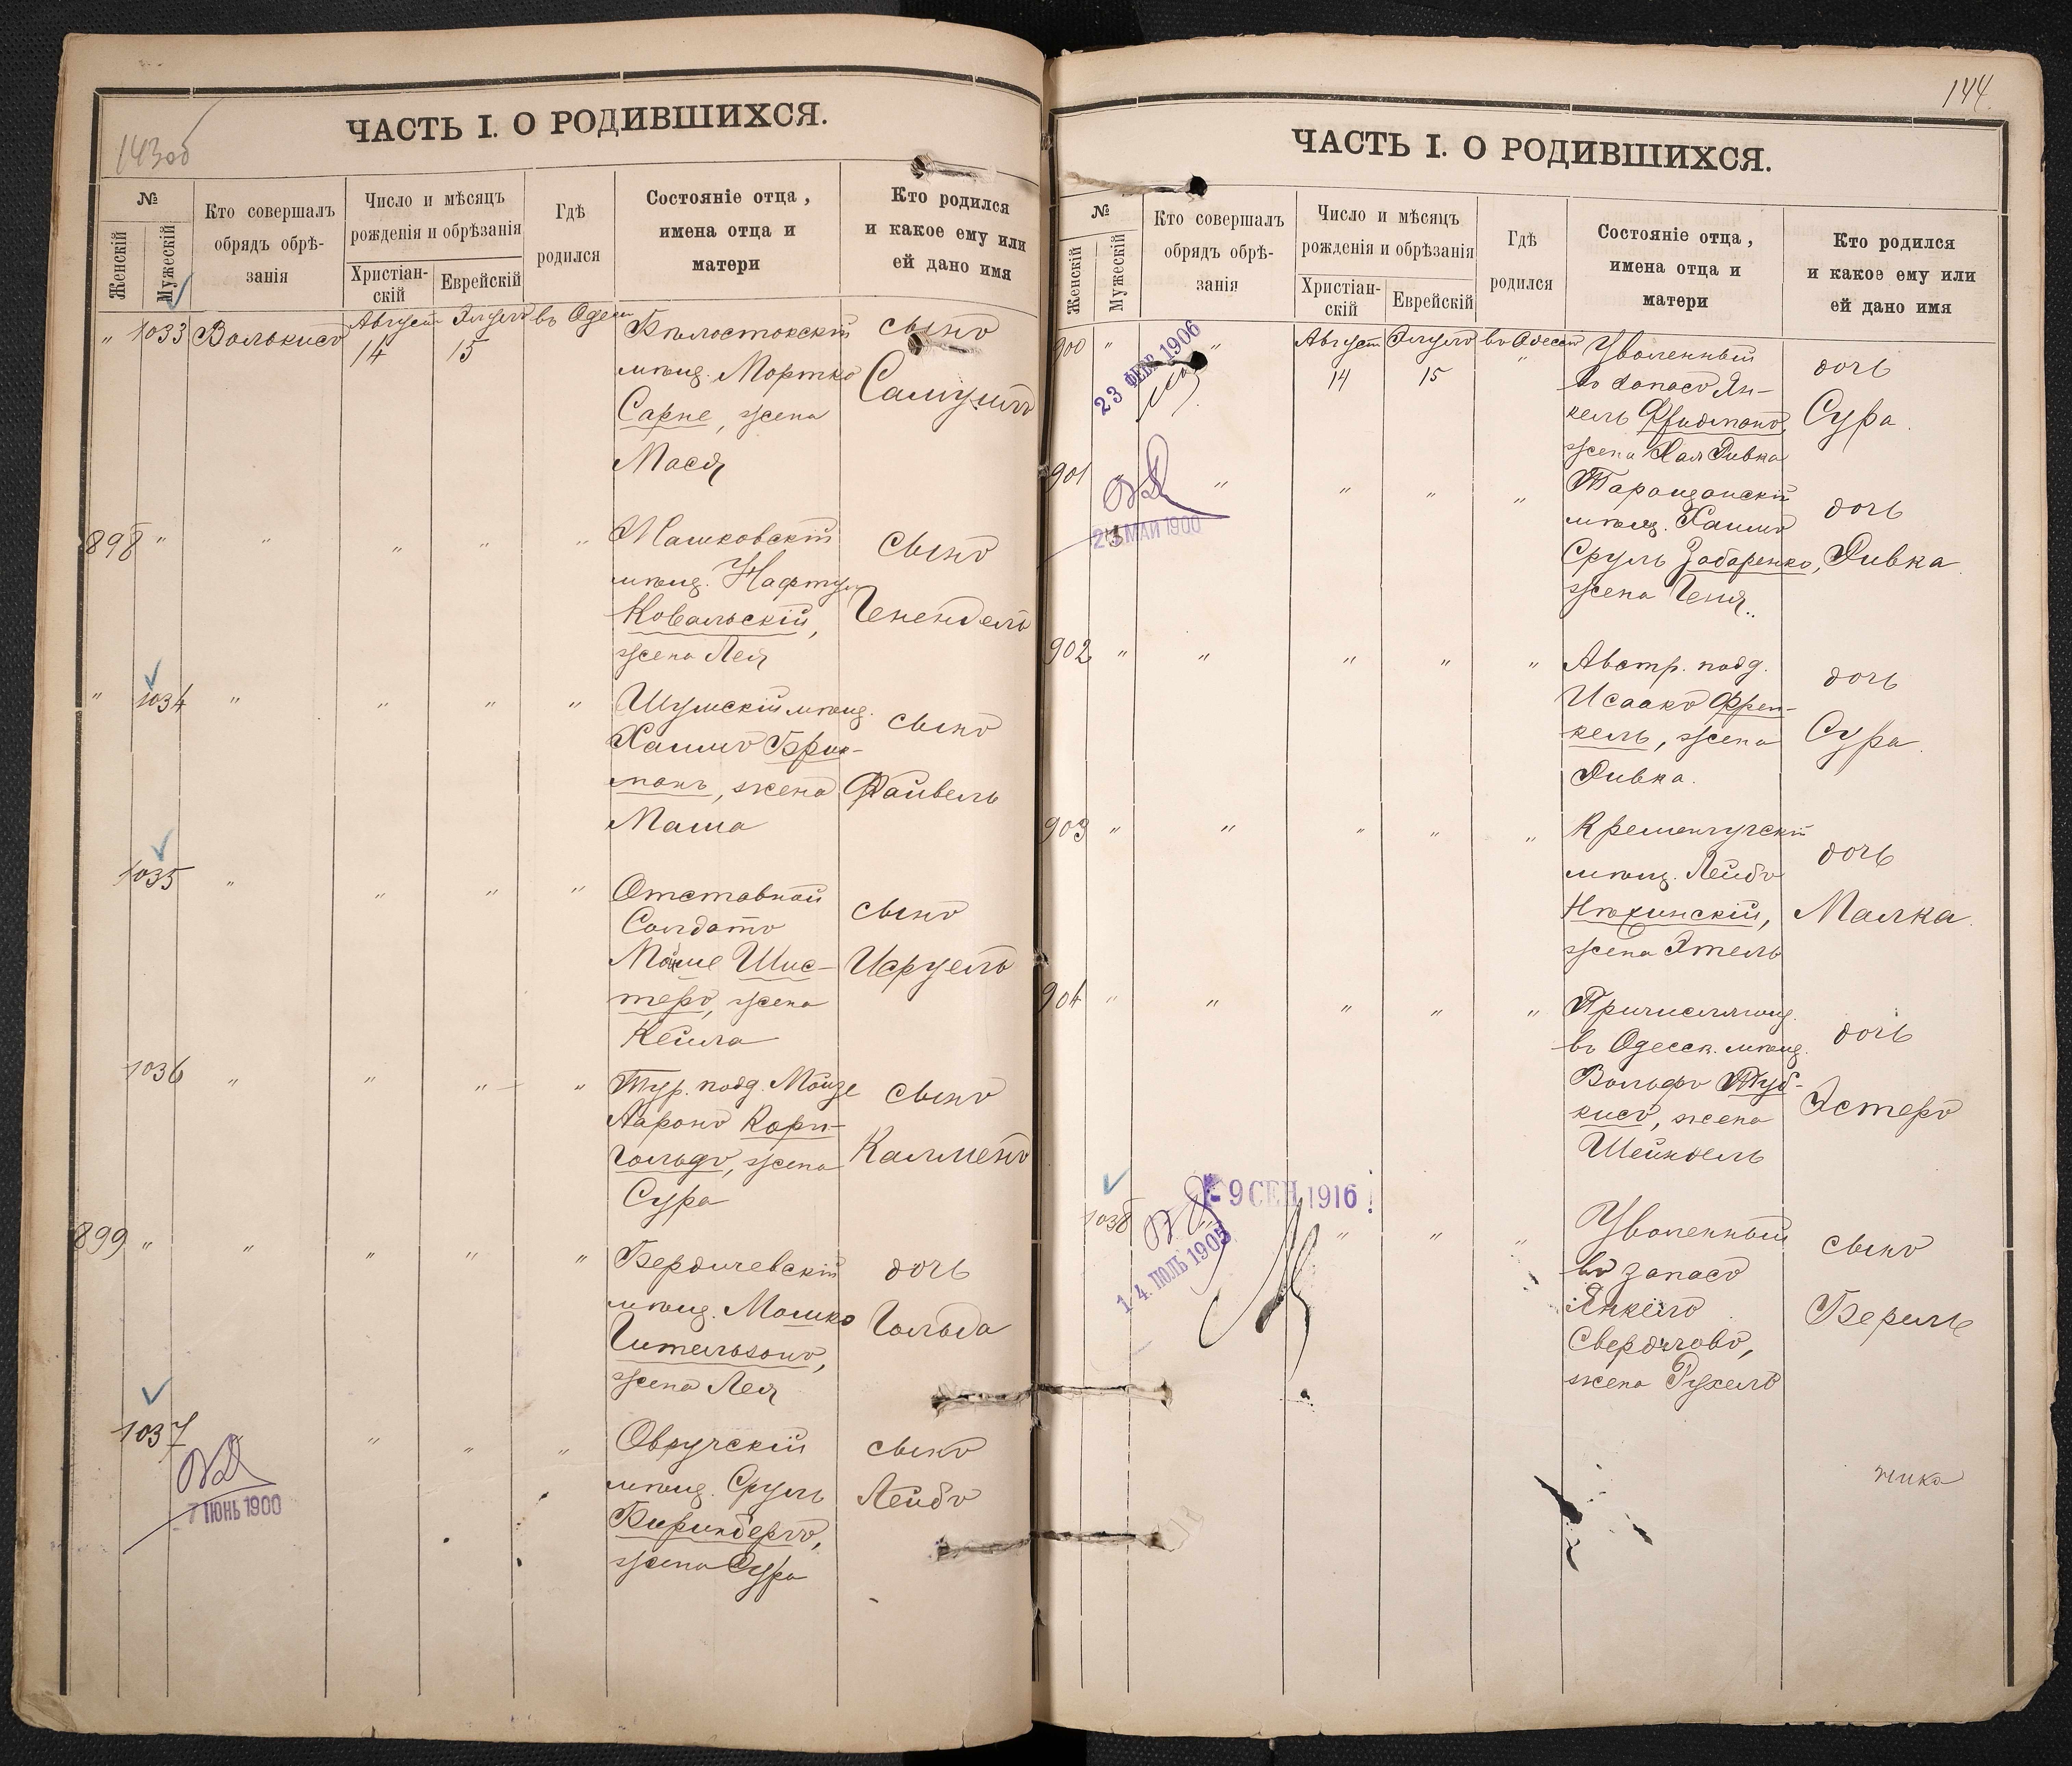 143об
ЧАСТЬ I. О РОДИВШИХСЯ.
№
Женскій
Мужескій
Кто совершалъ
обрядъ обрѣ-
занія
Число и мѣсяцъ
рожденія и обрѣзанія
Христіан-
скій
Еврейскій
Гдѣ
родился
Состояніе отца,
имена отца и
матери
Кто родился
и какое ему или
ей дано имя
" 1033
Августъ Элулъ въ Одессѣ
14 15
Бѣлостокскій
мѣщ. Мортко
Сарне, жена
Мася
сынъ
Самуилъ
898 " " " " "
Машковскій
мѣщ. Нафтул
Ковальскій,
жена Лея
сынъ
Генендель
" 1034 " " " "
Шумскій мѣщ.
Хаимъ
манъ, жена
Маша
сынъ
Файвель
1035 " " " "
Отставной
Солдатъ
Мойше Шис-
теръ, жена
Кейла
сынъ
Исруель
1036 " " " "
Тур. подд. Моизе
Ааронъ Корн-
гольдъ, жена
Сура
сынъ
Калменъ
899 " " " " "
Бердичевскій
мѣщ. Мошко
Гительзонъ,
жена Лея
дочь
Гольда
1037 " " "
7 ІЮНЬ 1900
Овручскій
мѣщ. Сруль
жена Сура
сынъ
Лейбъ
144.
ЧАСТЬ I. О РОДИВШИХСЯ.
№
Женскій
Мужескій
Кто совершалъ
обрядъ обрѣ-
занія
Число и мѣсяцъ
рожденія и обрѣзанія
Христіан-
скій
Еврейскій
Гдѣ
родился
Состояніе отца,
имена отца и
матери
Кто родился
и какое ему или
ей дано имя
900 " "
23 ФЕВР 1906
Августъ Элулъ въ Одессѣ
14 15 "
Уволенный
въ запасъ Ян-
кель Фридманъ,
жена Хая Ривка
дочь
Сура.
901 " " " " "
МАЙ 1900
Таращанскій
мѣщ. Хаимъ
Сруль Забаренко,
жена Геня.
дочь
Ривка.
902 " " " " "
Австр. подд.
Исаакъ Френ-
кель, жена
Ривка.
дочь
Сура.
903 " " " " "
Кременчугскій
мѣщ. Лейбъ
жена Этель
дочь
Малка.
904 " " " " "
Причисл. мѣщ.
въ Одесск. мѣщ.
Вольфъ Туб-
кисъ, жена
Шейндель
дочь
Эстеръ
1038 " " " "
9 СЕН 1916
14. ІЮЛЬ 1905
Уволенный
въ запасъ
Янкель
Свердловъ,
жена Рухель
сынъ
Бериль